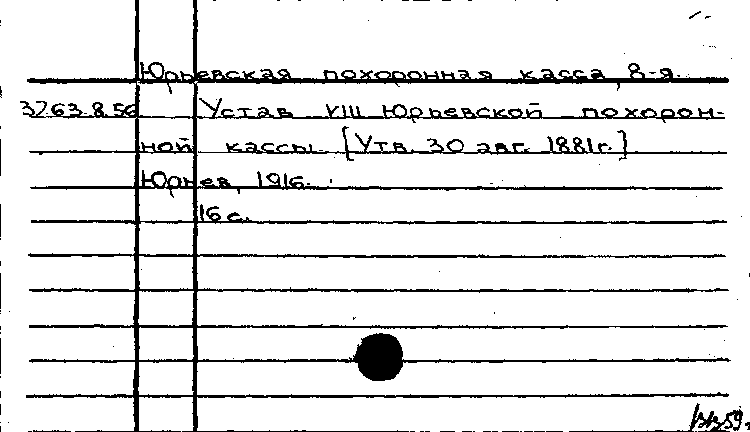 Юрьевская похоронная касса, 8-я.
3263.8.56 Устав VIII Юрьевской похорон-
ной кассы. [Утв. 30 авг. 1881г.]
Юрьев, 1916.
16 с.